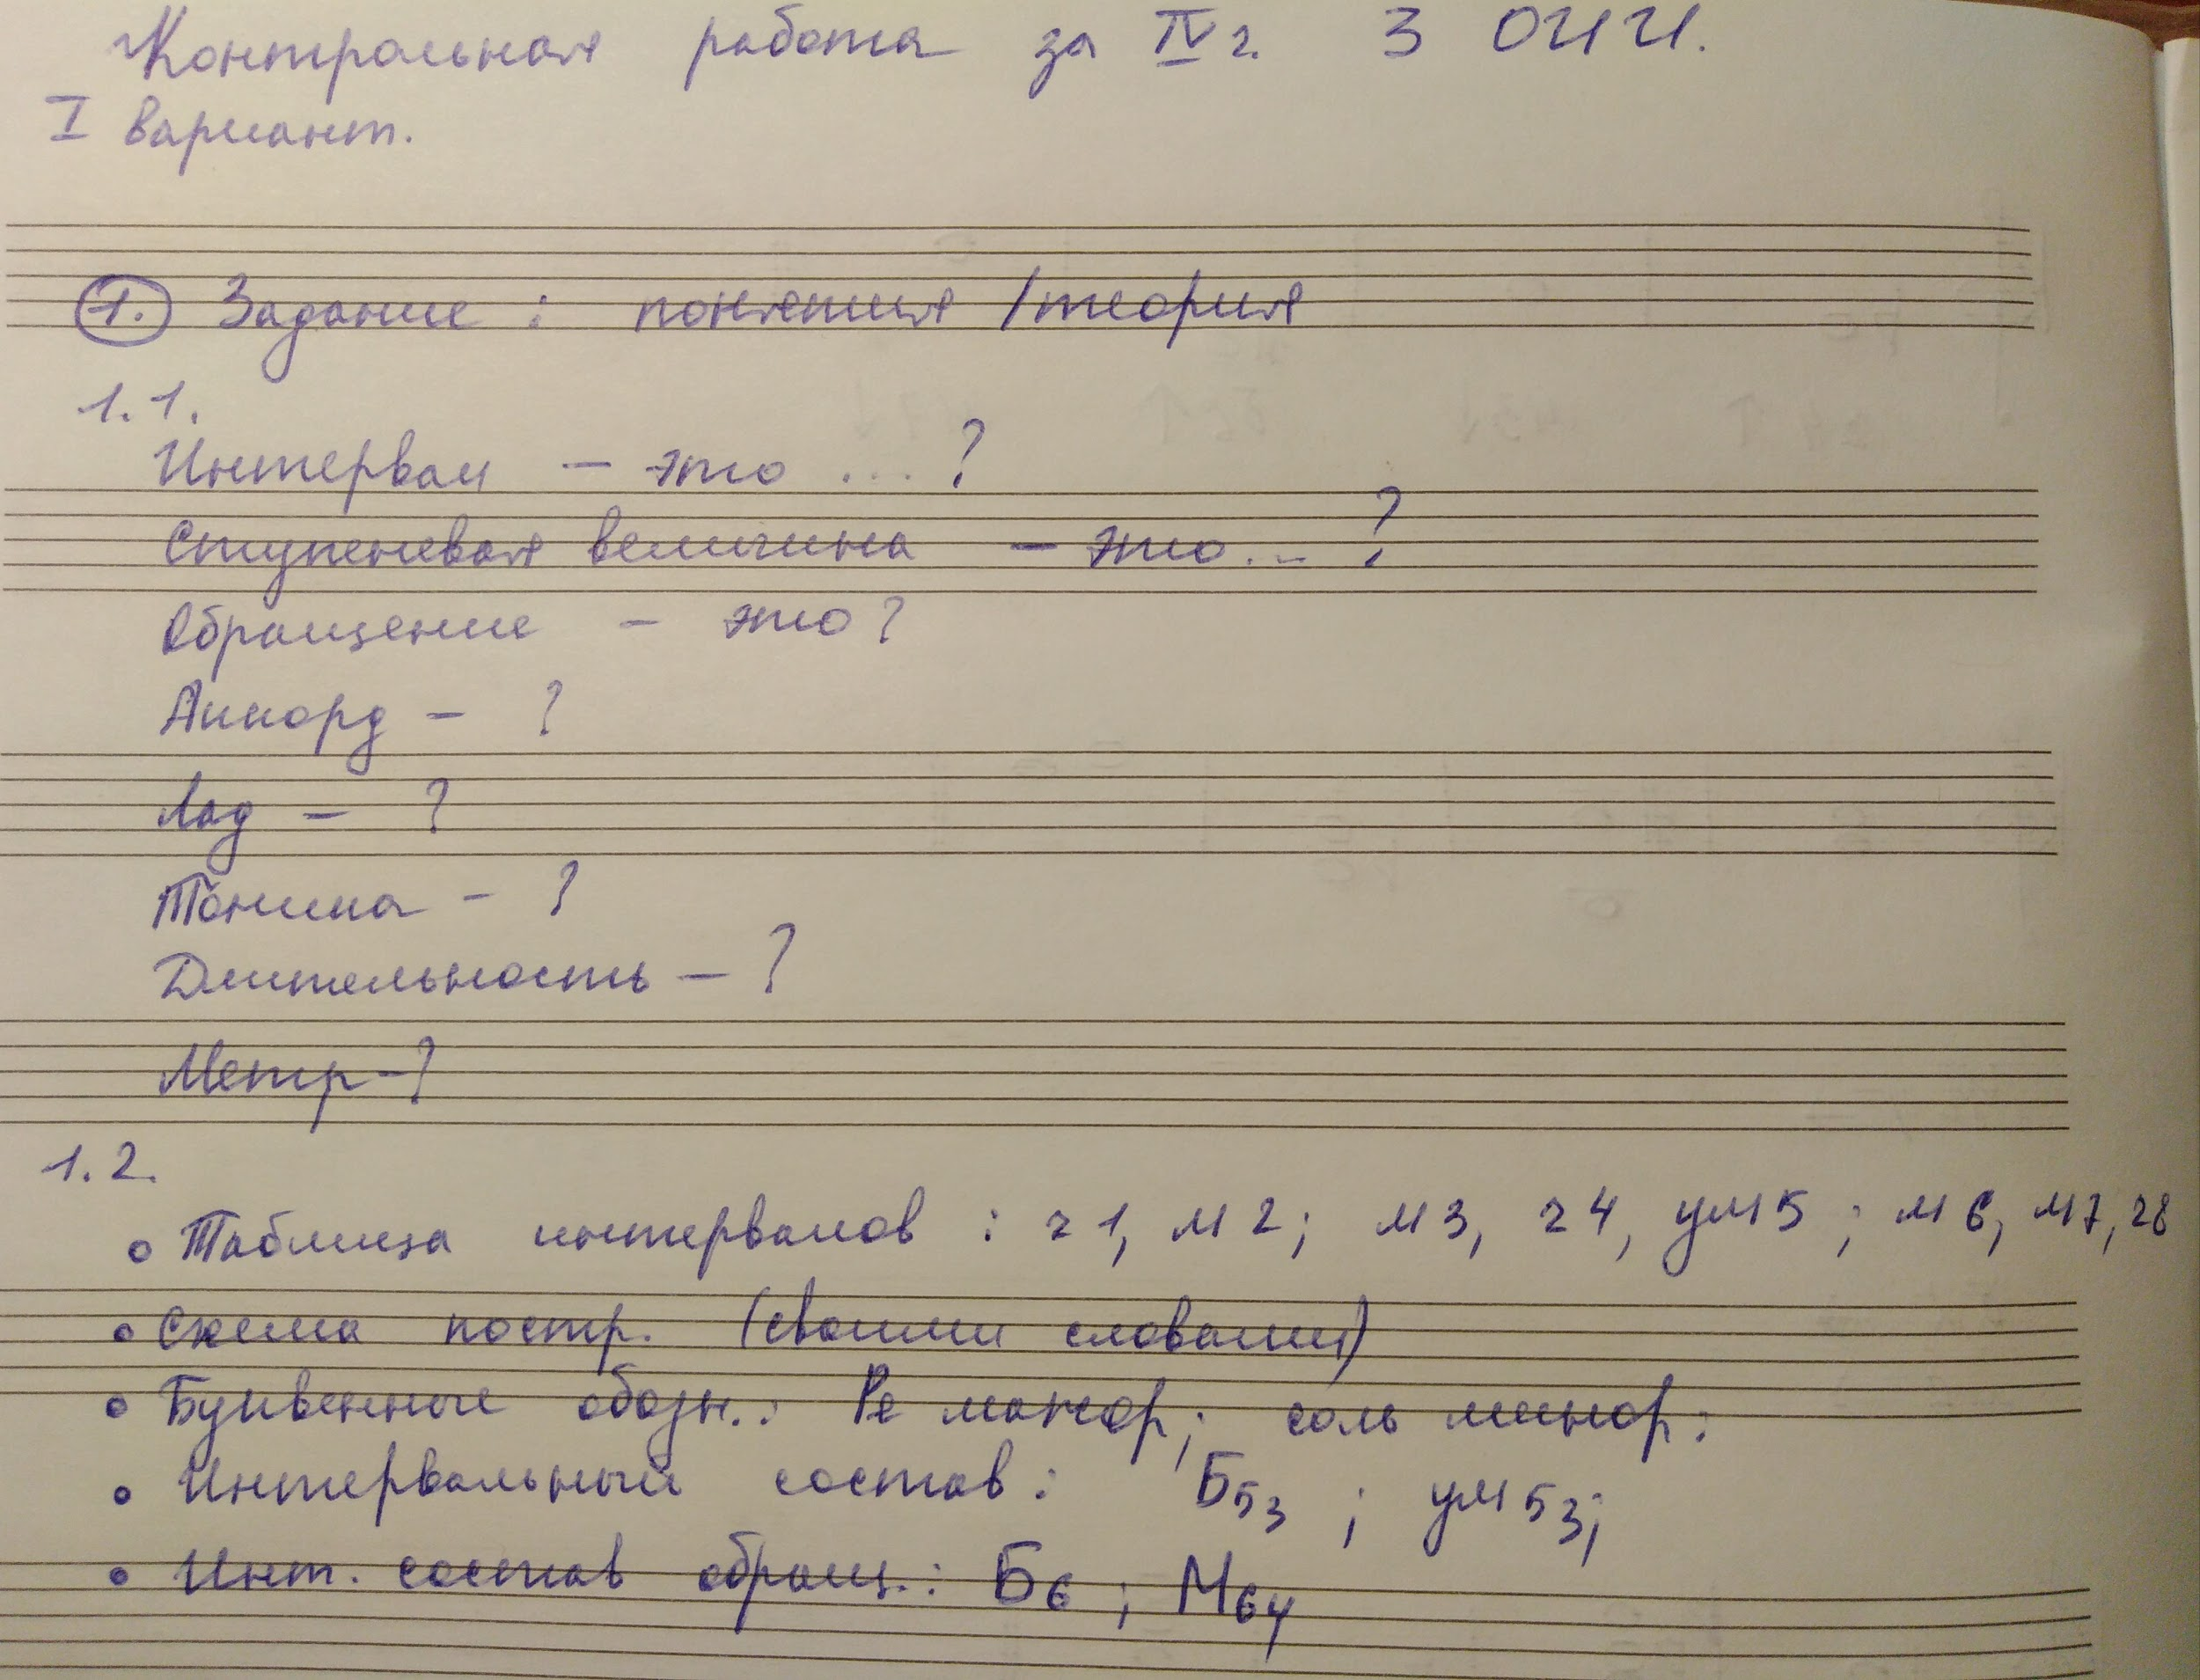 Контрольная работа за IV г. 3 ОНИ.
I вариант.
1. Задание : понятия / теория
1.1.
Интервал – это ... ?
Ступеневая величина – это... ?
Обращение – это ?
Аккорд – ?
Лад – ?
Тоника – ?
Длительность – ?
Метр – ?
1.2.
• Таблица интервалов : ч1, м2; м3, ч4, ум5 ; м6, м7, ч8
• Схема постр. (своими словами)
• Буквенные обозн.: Ре мажор; соль минор:
• Интервальный состав: Б53 ; ум53;
• Инт. состав обращ.: Б6 ; М64